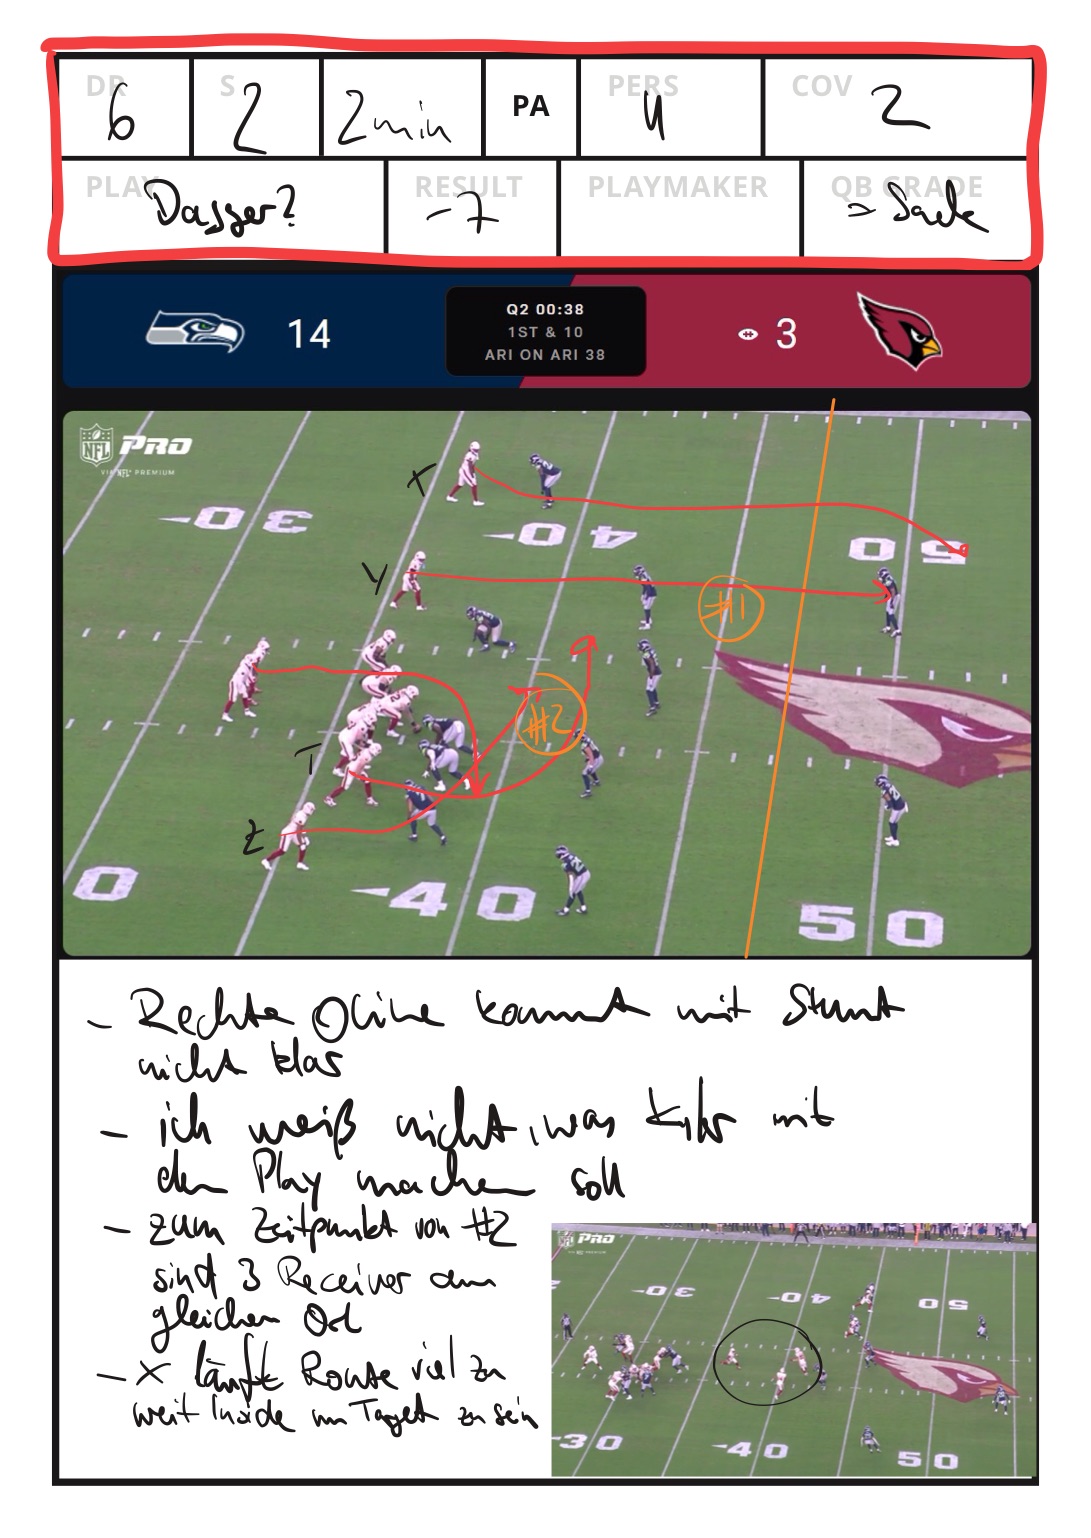 DR S PERS COV
6 2 2min PA 4 2
PLAY RESULT PLAYMAKER QB GRADE
Dagger? -7 = Sack
14
Q2 00:38
1ST & 10
ARI ON ARI 38
3
NFL PRO
VIA NFL+ PREMIUM
X
30 40 50
Y
#1
#2
T
Z
0 40 50
- Rechte Oline kommt mit Stunt
nicht klar
- ich weiß nicht, was Kyler mit
dem Play machen soll
- zum Zeitpunkt von #2
sind 3 Receiver am
gleichen Ort
- X läuft Route viel zu
weit Inside um Target zu sein
NFL PRO
30 40 50
30 40 50